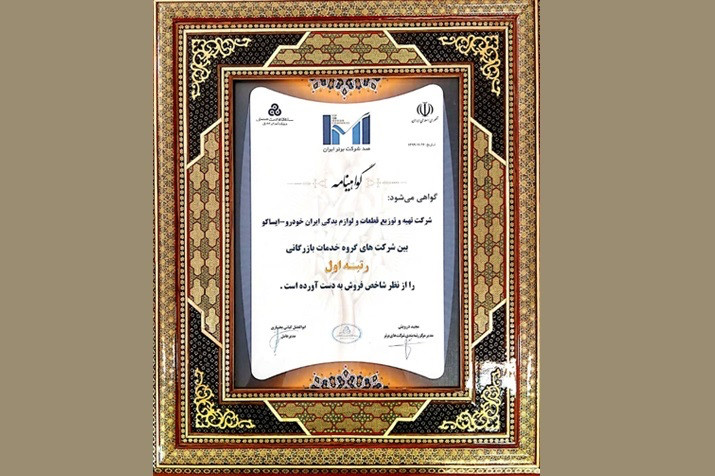 جمهوری اسلامی ایران
صد شرکت برتر ایران
گواهینامه
گواهی می‌شود:
شرکت تهیه و توزیع قطعات و لوازم یدکی ایران خودرو-ایساکو
بین شرکت های گروه خدمات بازرگانی
رتبه اول
را از نظر شاخص فروش به دست آورده است.
مجید درویش
مدیر مرکز رتبه‌بندی شرکت‌های برتر
ابوالفضل کیانی بختیاری
مدیرعامل